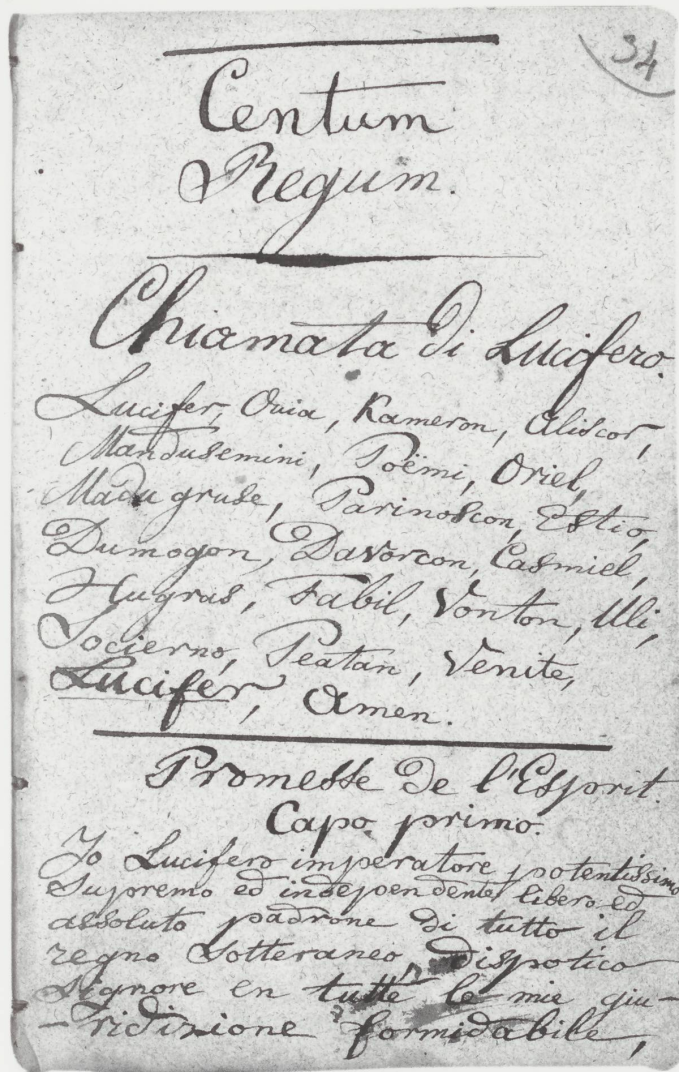 34
Centum
Regum.
Chiamata di Lucifero.
Lucifer, Ouia, Kameron, Aliscor,
Mandusemini, Poëmi, Oriel,
Madugruse, Parinoscon, Estio,
Dumogon, Davorcon, Casmiel,
Hugras, Fabil, Vonton, Uli,
Socierno, Peatan, Venite,
Lucifer, Amen.
Promesse de l'Esprit.
Capo primo.
Io Lucifero imperatore potentissimo
Supremo ed independente, libero ed
assoluto padrone di tutto il
regno Sotteraneo, dispotico
Signore en tutte le mie giu-
-ridizione formidabile,